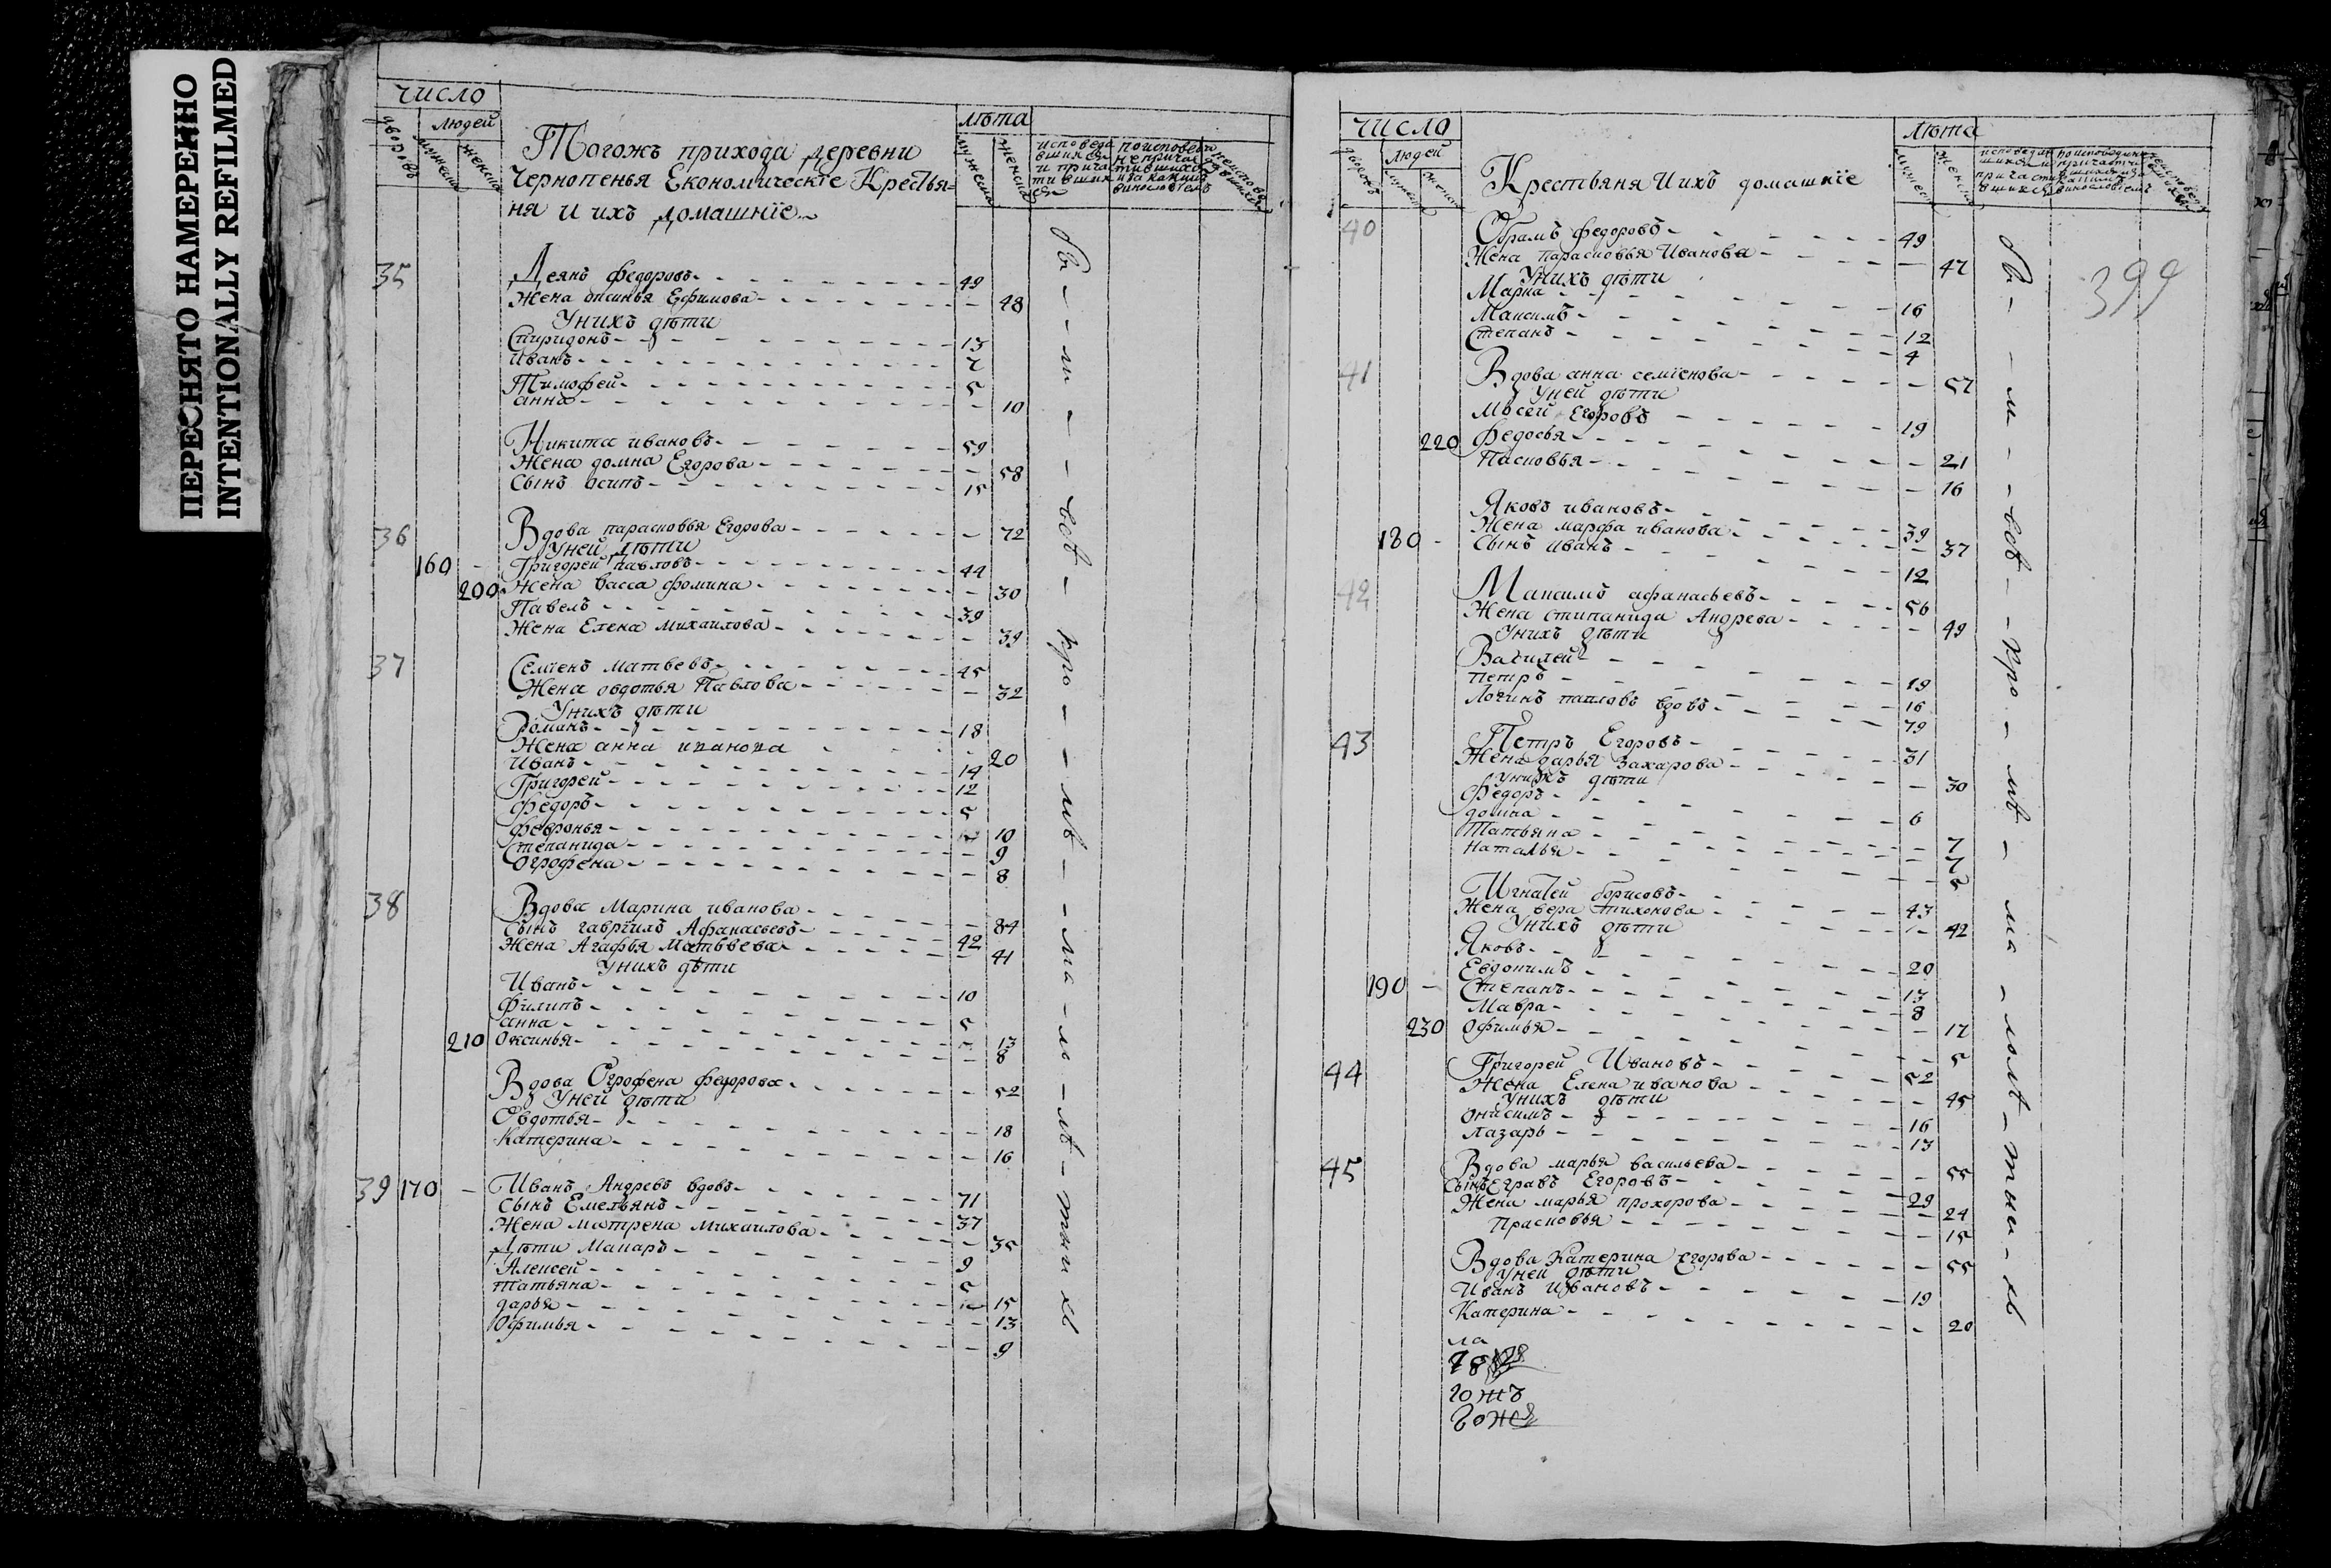 ПЕРЕСНЯТО НАМЕРЕННО
INTENTIONALLY REFILMED
число
людей
дворовъ
мужеска
женска
Тогожъ прихода деревни
Чернопенья Економическïе Крестья=
ня И ихъ домашнïе
лѣта
мужеска
женска
35 Деянъ федоровъ 49
Жена оксинья Ефимова 48
Унихъ дѣти
Спиридонъ 13
иванъ 7
Тимофей 5
анна 10
Никита ивановъ 59
Жена домна Егорова 58
Сынъ осипъ 15
36 Вдова парасковья Егорова 72
Уней дѣти
160 Григорей павловъ 44
200 Жена васса фомина 30
Павелъ 39
Жена Елена михаилова 39
37 Семïенъ матвеевъ 45
Жена овдотья Павлова 32
Унихъ дѣти
Романъ 18
Жена анна иванова 20
Иванъ 14
Григорей 12
федоръ 5
февронья 10
Степанида 9
Огрофена 8
38 Вдова Марина иванова 84
Сынъ гаврïилъ Афанасьевъ 42
Жена Агафья Матвѣева 41
Унихъ дѣти
Иванъ 10
Филипъ 5
анна 13
210 Оксинья 8
Вдова Огрофена федорова 52
Уней дѣти
Овдотья 18
Катерина 16
39 170 Иванъ Андревъ вдовъ 71
Сынъ Емельянъ 37
Жена матрена михаилова 35
Дѣти Макаръ 9
Алексей 5
Татьяна 15
дарья 13
Офимья 9
число
людей
Крестьяня Иихъ домашнïе
лѣта
399
40 Обрамъ федоровъ 49
Жена парасковья Иванова 47
Унихъ дѣти
Марка 16
Максимъ 12
Степанъ 4
41 Вдова анна семïенова 57
Уней дѣти
Мосей Егоровъ 19
220 Федосья 21
Пасковья 16
Яковъ ивановъ 39
Жена марфа иванова 37
180 Сынъ иванъ 12
42 Максимъ афанасьевъ 56
Жена стипанида Андрева 49
Унихъ дѣти
Василей 19
петръ 16
Логинъ павловъ вдовъ 79
43 Петръ Егоровъ 31
Жена дарья Захарова 30
Унихъ дѣти
Федоръ 6
домна 7
Татьяна 7
Наталья 5
Игнатей борисовъ 43
Жена вера тихонова 42
Унихъ дѣти
Яковъ 20
Евдокимъ 13
190 Степанъ 8
Мавра 17
230 Офимья 5
44 Григорей Ивановъ 52
Жена Елена иванова 45
Унихъ дѣти
Онисимъ 16
Лазарь 13
45 Вдова марья васильева 55
Сынъ Егравъ Егоровъ 29
Жена марья прохорова 24
Прасковья 15
Вдова Катерина Егорова 55
Уней дѣти
Иванъ Ивановъ 19
Катерина 20
ла
гожъ